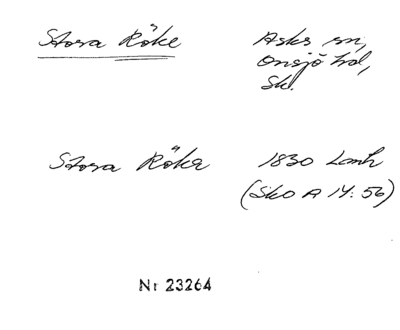 Stora Röke Asks sn,
Onsjö hd,
Sk.
Stora Röke 1830 Lmh
(Sko A 14:56)
Nr 23264